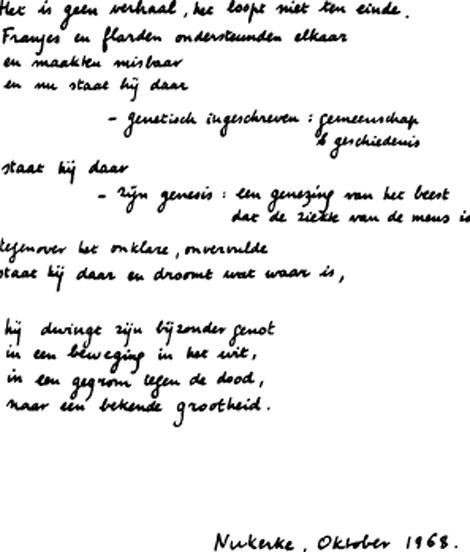 Het is geen verhaal, het loopt niet ten einde.
Franjes en flarden ondersteunden elkaar
en maakten misbaar
en nu staat hij daar
- genetisch ingeschreven : gemeenschap
& geschiedenis
staat hij daar
- zijn genesis : een genezing van het beest
dat de ziekte van de mens is
tegenover het onklare, onvervulde
staat hij daar en droomt wat waar is,
hij dwingt zijn bijzonder genot
in een beweging in het wit,
in een gegrom tegen de dood,
naar een bekende grootheid.
Nukerke, Oktober 1968.